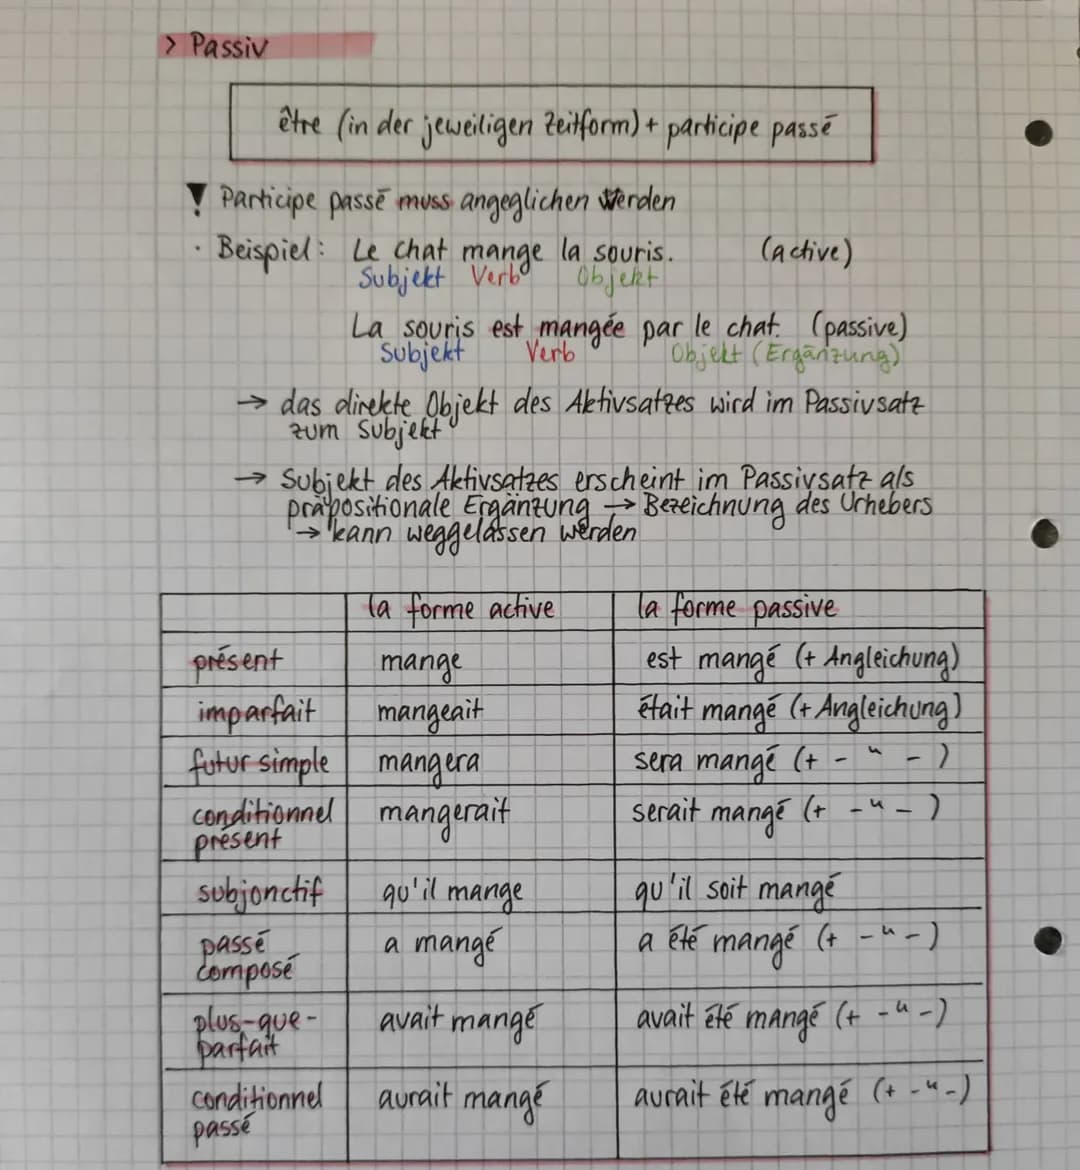 > Passiv
être (in der jeweiligen Zeitform) + participe passé
! Participe passé muss angeglichen werden
· Beispiel: Le chat mange la souris. (active)
Subjekt Verb Objekt
La souris est mangée par le chat. (passive)
Subjekt Verb Objekt (Ergänzung)
→ das direkte Objekt des Aktivsatzes wird im Passivsatz
zum Subjekt
→ Subjekt des Aktivsatzes erscheint im Passivsatz als
präpositionale Ergänzung → Bezeichnung des Urhebers
→ kann weggelassen werden
la forme active la forme passive
présent mange est mangé (+ Angleichung)
imparfait mangeait était mangé (+ Angleichung)
futur simple mangera sera mangé (+ - " - )
conditionnel mangerait serait mangé (+ - " - )
présent
subjonctif qu'il mange qu'il soit mangé
passé a mangé a été mangé (+ - " - )
composé
plus-que- avait mangé avait été mangé (+ - " - )
parfait
conditionnel aurait mangé aurait été mangé (+ - " - )
passé